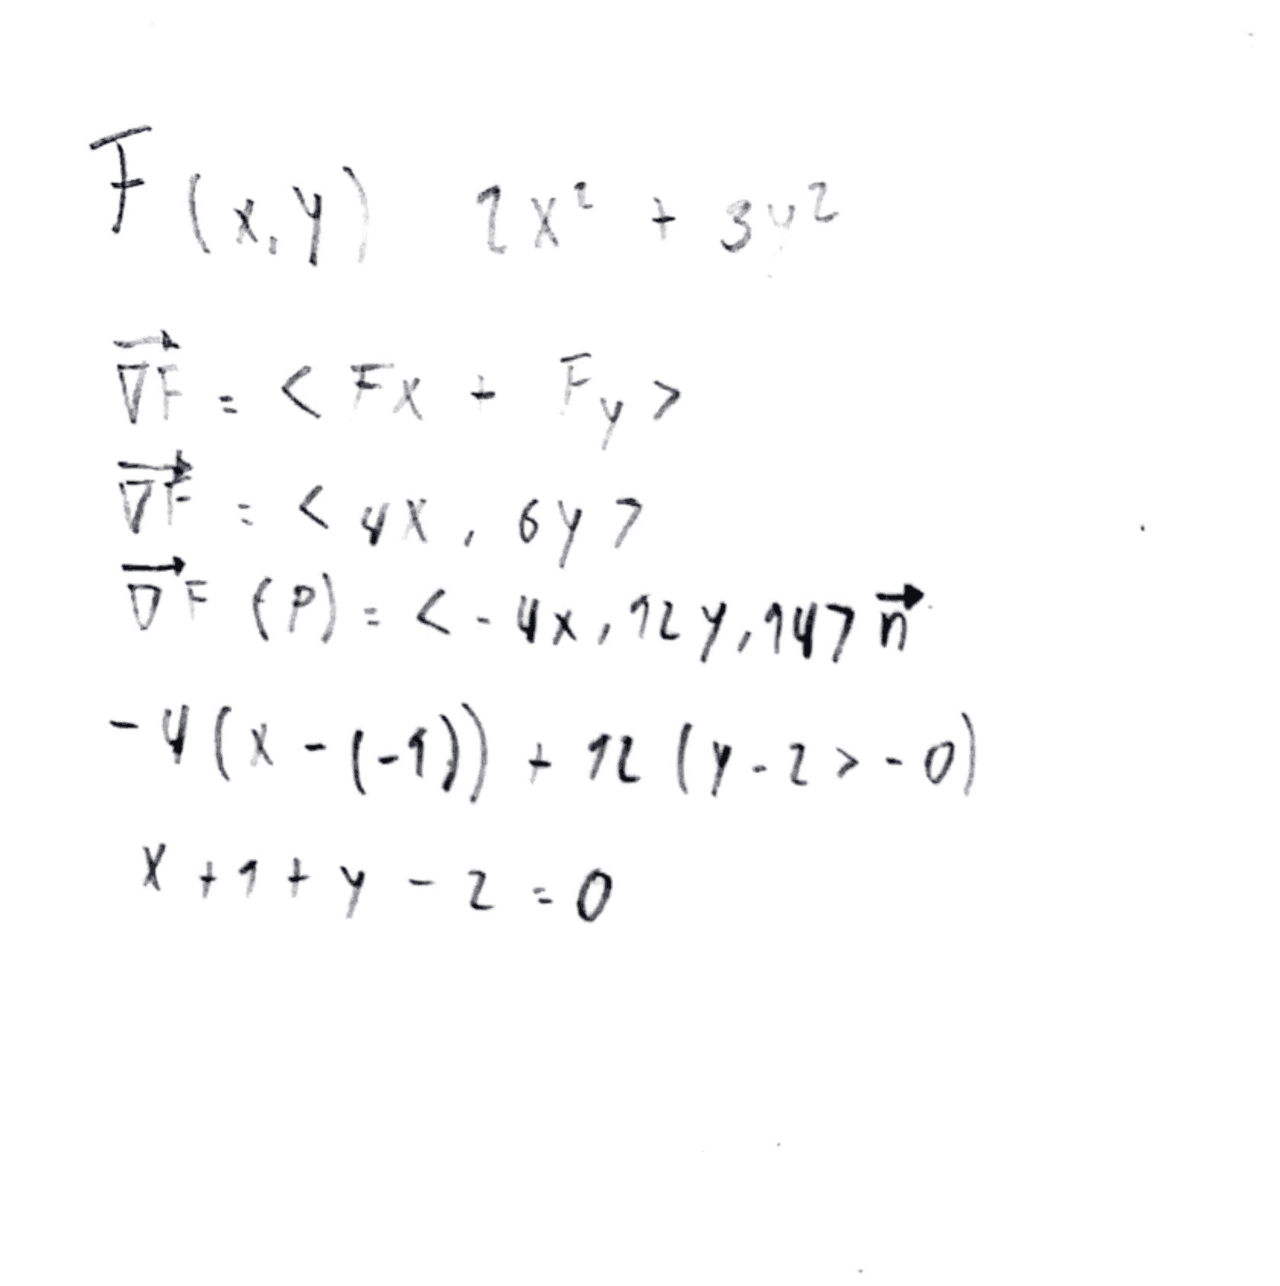 F (x,y) 2x² + 3y²
∇F = < Fx + Fy >
∇F = < 4x, 6y >
∇F (P) = < - 4x, 12y, 14 > n
- 4 (x - (-1)) + 12 (y - 2 > - 0)
x + 1 + y - 2 = 0